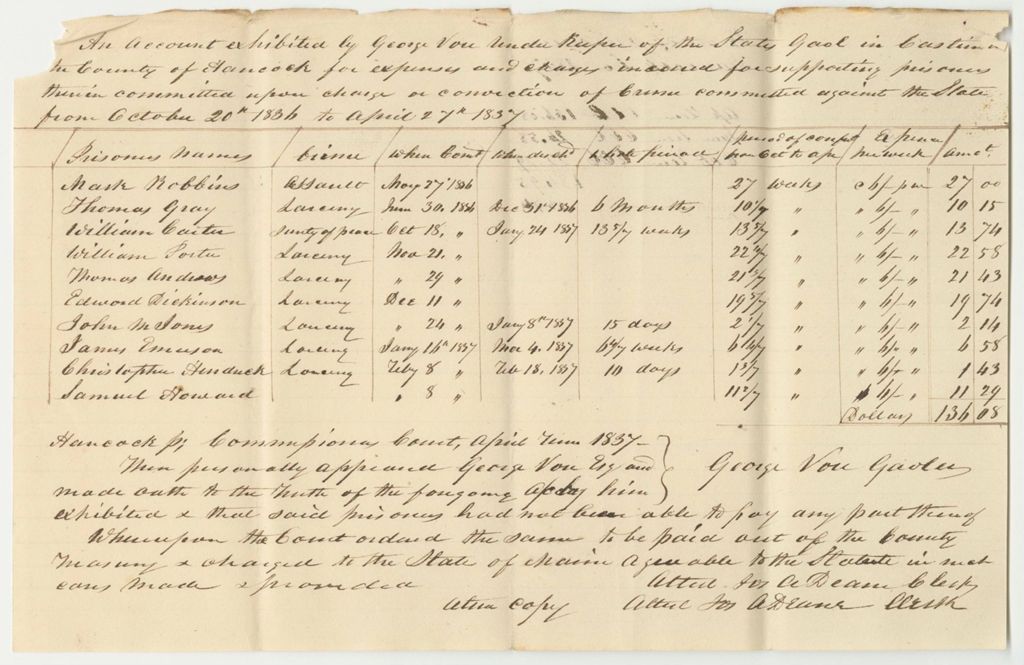 An Account exhibited by George Vose under Keeper of the States Gaol in Castine in
the County of Hancock for expenses and charges incurred for supporting prisoners
therein committed upon charge or conviction of Crime committed against the State
from October 20th 1836 to April 27th 1837
Prisoners Names Crime When Comt When disch Whole period period of confnt from Oct to Apr Expense per week Amot.
Mark Robbins Assault May 27 1836 27 weeks @ 6/- pr 27 00
Thomas Gray Larceny June 30. 1836 Dec 31st 1836 6 Months 10 1/7 " " 6/- " 10 15
William Carter surety of peace Oct 18, " Jany 24 1837 13 5/7 weeks 13 5/7 " " 6/- " 13 74
William Porter Larceny Nov 21. " 22 4/7 " " 6/- " 22 58
Thomas Andrews Larceny " 29 " 21 3/7 " " 6/- " 21 43
Edward Dickinson Larceny Dec 11 " 19 5/7 " " 6/- " 19 74
John M Jones Larceny " 24 " Jany 8th 1837 15 days 2 1/7 " " 6/- " 2 14
James Emerson Larceny Jany 16th 1837 Mar 4. 1837 6 4/7 weeks 6 4/7 " " 6/- " 6 58
Christopher Larceny Feby 8 " Feb 18, 1837 10 days 1 3/7 " " 6/- " 1 43
Samuel Howard " 8 " 11 2/7 " " 6/- " 11 29
Dollars 136 08
Hancock ss, Commissioners Court, April Term 1837—
Then personally appeared George Vose Esq and George Vose Gaoler
made oath to the truth of the foregoing a/c by him
exhibited & that said prisoners had not been able to pay any part thereof
Whereupon the Court ordered the same to be paid out of the County
Treasury & charged to the State of Maine agreeable to the Statute in such
cases made & provided Attest Jos A Deane Clerk
A true copy Attest Jos A Deane Clerk